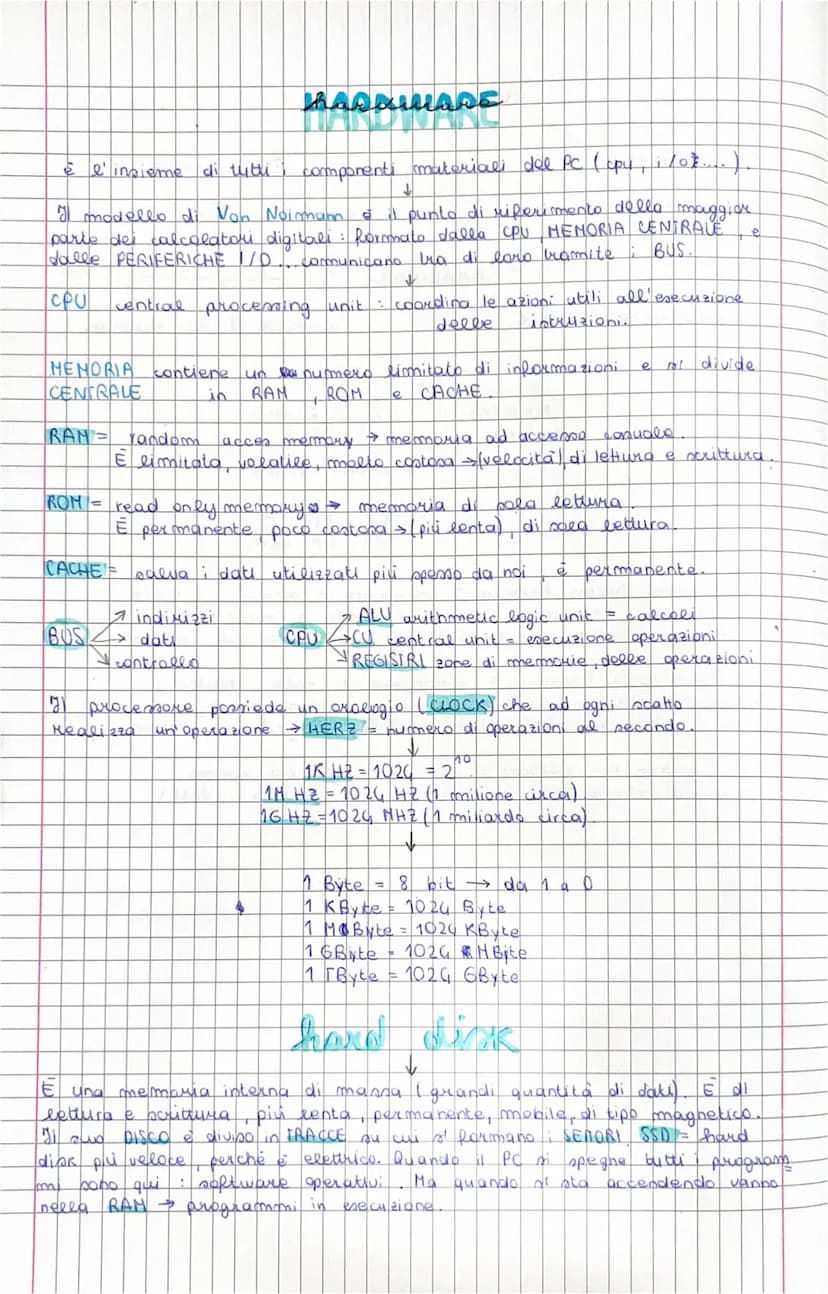 hardware
HARDWARE
è l'insieme di tutti i componenti materiali del PC (cpu, i/o, ...).
↓
Il modello di Von Noimann è il punto di riferimento della maggior
parte dei calcolatori digitali : formato dalla CPU, MEMORIA CENTRALE, e
dalle PERIFERICHE I/O... comunicano tra di loro tramite i BUS.
↓
CPU central processing unit : coordina le azioni utili all'esecuzione
delle istruzioni.
MEMORIA contiene un numero limitato di informazioni e si divide
CENTRALE in RAM, ROM e CACHE.
RAM = random acces memory → memoria ad accesso casuale.
È limitata, volatile, molto costosa → (velocità), di lettura e scrittura.
ROM = read only memory → memoria di sola lettura.
È permanente, poco costosa → (più lenta), di sola lettura.
CACHE = salva i dati utilizzati più spesso da noi, è permanente.
BUS → indirizzi → dati → controllo
CPU → ALU arithmetic logic unit = calcoli
→ CU central unit = esecuzione operazioni
→ REGISTRI zone di memorie, delle operazioni
Il processore possiede un orologio (CLOCK) che ad ogni scatto
realizza un'operazione → HERZ = numero di operazioni al secondo.
↓
1K HZ = 1024 = 2¹⁰
1M HZ = 1024 HZ (1 milione circa)
1G HZ = 1024 MHZ (1 miliardo circa)
↓
1 Byte = 8 bit → da 1 a 0
1 KByte = 1024 Byte
1 MByte = 1024 KByte
1 GByte = 1024 MByte
1 TByte = 1024 GByte
hard disk
↓
È una memoria interna di massa (grandi quantità di dati). È di
lettura e scrittura, più lenta, permanente, mobile, di tipo magnetico.
Il suo DISCO è diviso in TRACCE su cui si formano i SETTORI. SSD = hard
disk più veloce, perchè è elettrico. Quando il PC si spegne tutti i program
mi sono qui : software operativi. Ma quando si sta accendendo vanno
nella RAM → programmi in esecuzione.